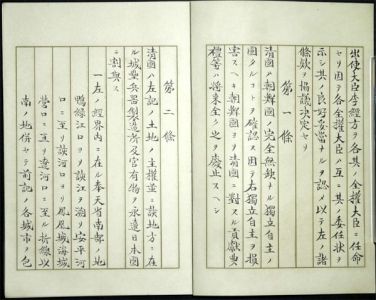 出使大臣李經方ヲ各其ノ全權大臣ニ任命
セリ因テ各全權大臣ハ互ニ其ノ委任狀ヲ
示シ其ノ良好妥當ナルヲ認メ以テ左ノ諸
條款ヲ協議決定セリ
第一條
清國ハ朝鮮國ノ完全無缺ナル獨立自主ノ
國タルコトヲ確認ス因テ右獨立自主ヲ損
害スヘキ朝鮮國ヨリ清國ニ對スル貢獻典
禮等ハ將來全ク之ヲ廢止スヘシ
第二條
清國ハ左記ノ土地ノ主權並ニ該地方ニ在
ル城壘兵器製造所及官有物ヲ永遠日本國
ニ割與ス
一左ノ經界内ニ在ル奉天省南部ノ地
鴨綠江口ヨリ該江ヲ溯リ安平河
口ニ至リ該河口ヨリ鳳凰城海城
營口ニ亘リ遼河口ニ至ル折線以
南ノ地併セテ前記ノ各城市ヲ包